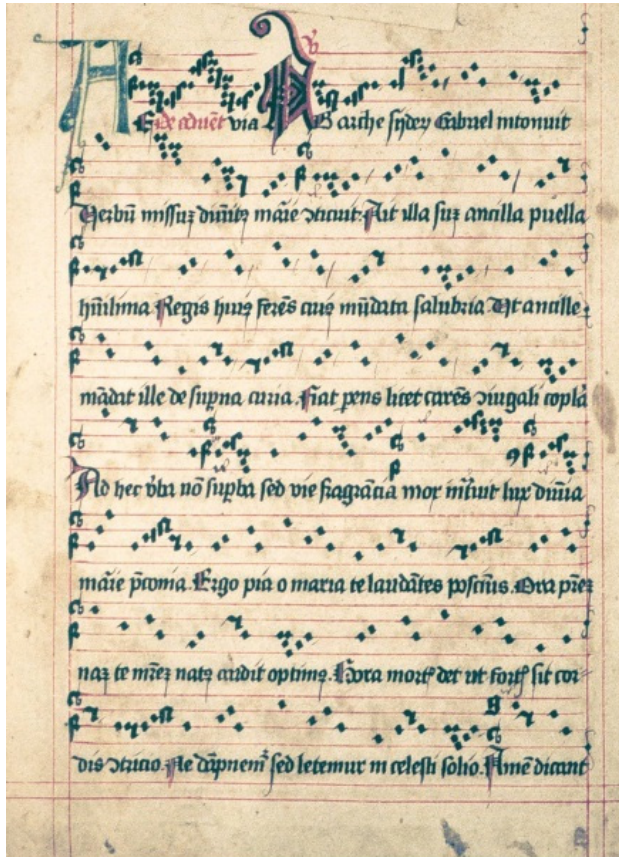 via A B arche syderꝫ Gabriel intonuit
Verbū missuꝫ diuīꝰ marīe ꝯticuit. Ait illa suꝫ ancilla puella
humilima Regis huiꝰ ferēs cuiꝰ mūdata salubria. Ut ancille
mādat ille de suꝑna curia. Fiat ꝑens licet carēs ꝯiugali coplā
Ad hec v̓ba nō suꝑba sed vie fragrācia mox intrauit lux diuīa
marīe p̄conia. Ergo pia o maria te laudātes poscimꝰ. Ora p̄reꝫ
naꝫ te mr̄eꝫ natꝰ audit optimꝰ. Hora mortꝭ det ut fortꝭ sit cor
dis ꝯtricio. Ne dāpnemᷣ sed letemur in celesti solio. Amē dicant